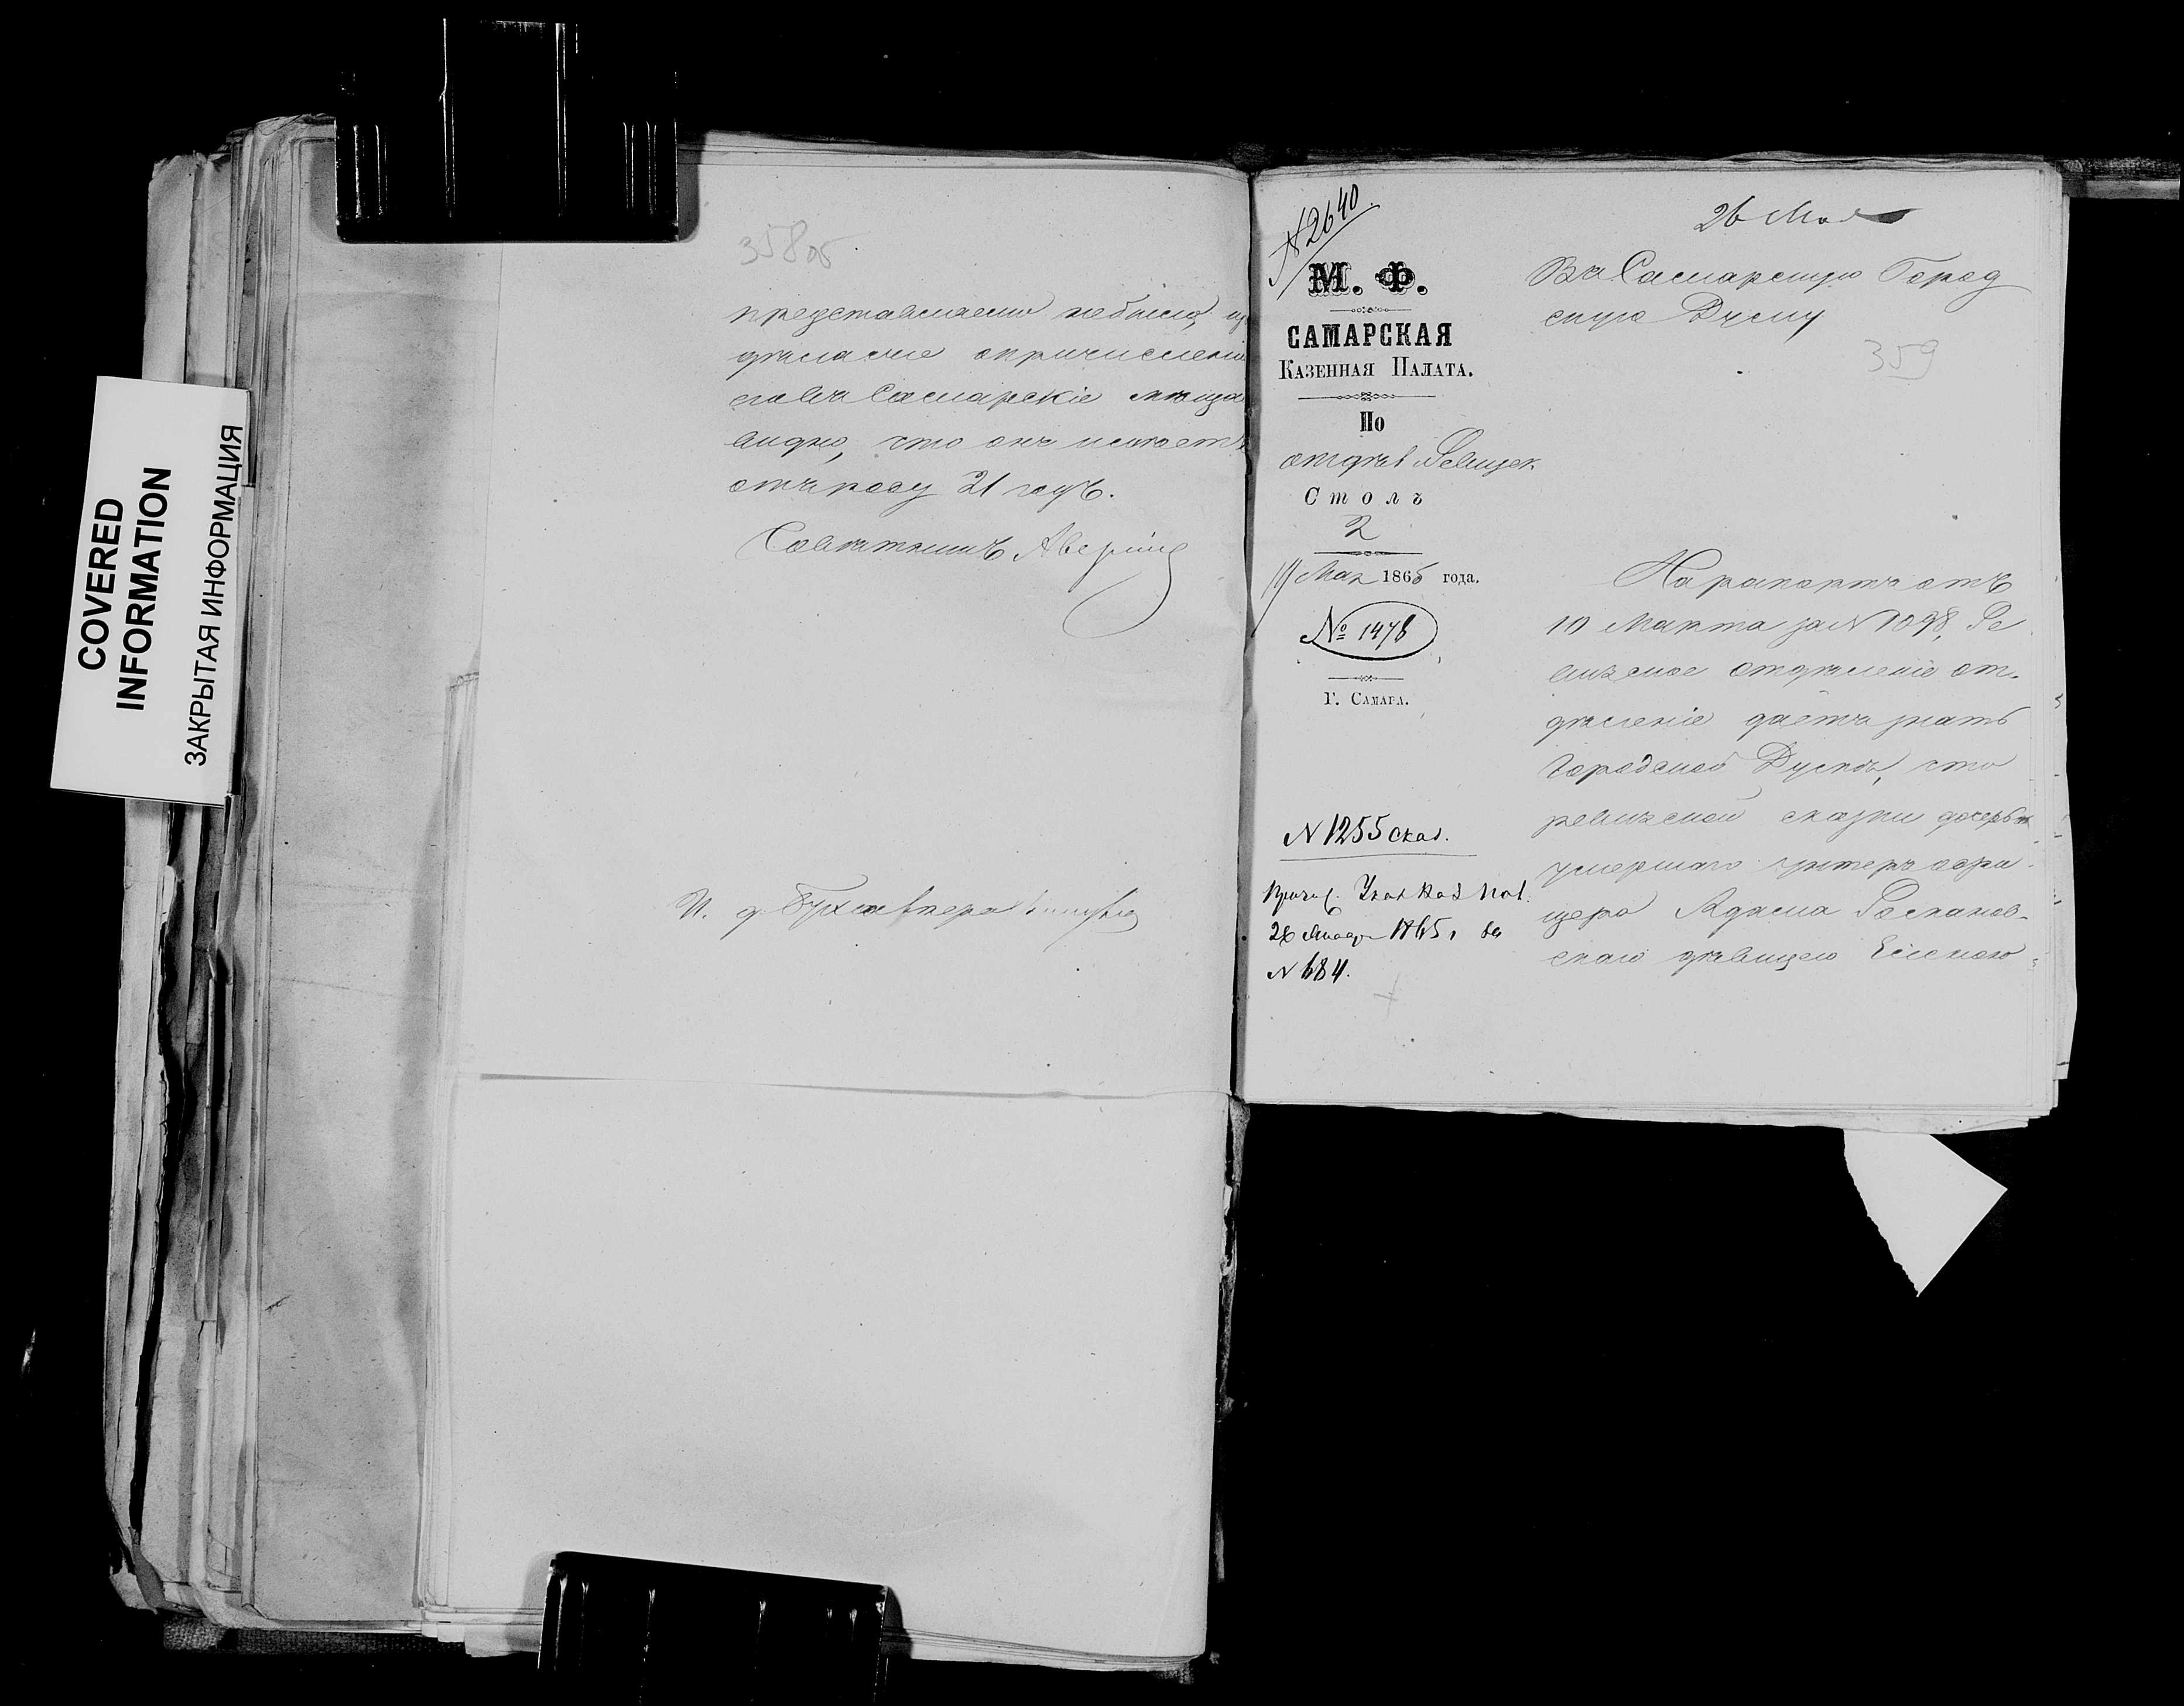 COVERED
INFORMATION
ЗАКРЫТАЯ ИНФОРМАЦИЯ
358об
представленно небыло, из
дѣла же опричисленіи
его въ Самарскіе мѣща
видно, что онъ имѣетъ
отъ роду 21 годъ.
Совѣтникъ Аверкіевъ
И. д. Бухгалтера
№ 2640.
М. Ф.
САМАРСКАЯ
КАЗЕННАЯ ПАЛАТА.
По
отдѣл Ревизск.
Столъ
2
19 Мая 1865 года.
№ 1476
Г. САМАРА.
N 1255 скаж.
Причис. Указ Каз Пал.
28 Января 1865 г за
N 684.
26 Мая
Въ Самарскую Город
скую Думу
359
На рапортъ отъ
10 Марта за N 1098, Ре
визское отдѣленіе от-
дѣленіе даетъ знать
Городской Думѣ, что
ревизской сказки дочерьми
умершаго унтеръ офи-
цера Адама
скаго дѣвицею